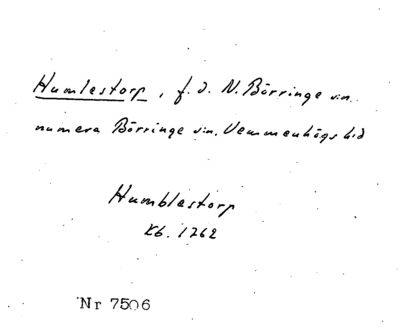 Humlestorp, f.d. N. Börringe sn.
numera Börringe sn. Vemmenhögs hd
Humblestorp
Kb. 1762
Nr 7506